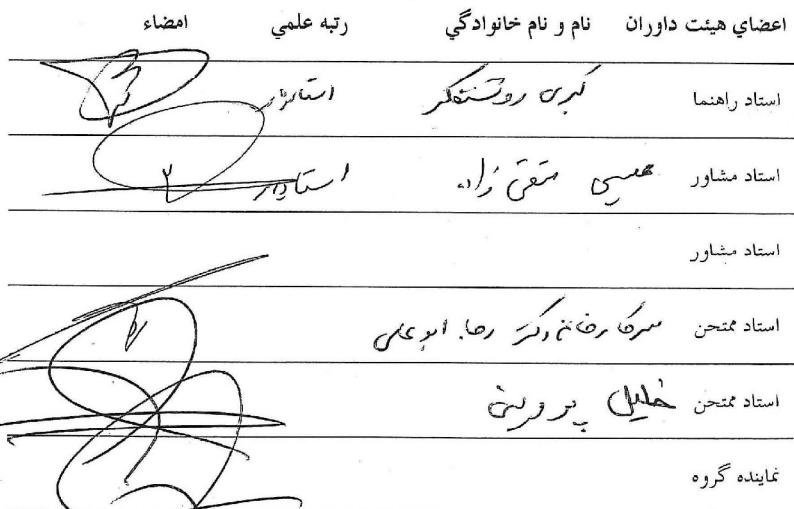 اعضاي هيئت داوران نام و نام خانوادگي رتبه علمي امضاء
استاد راهنما کبری روشنفکر استادیار
استاد مشاور عیسی متقی زاده استادیار
استاد مشاور
استاد ممتحن سرکار خانم دکتر رجاء ابوعلی
استاد ممتحن خلیل پروینی
نماينده گروه